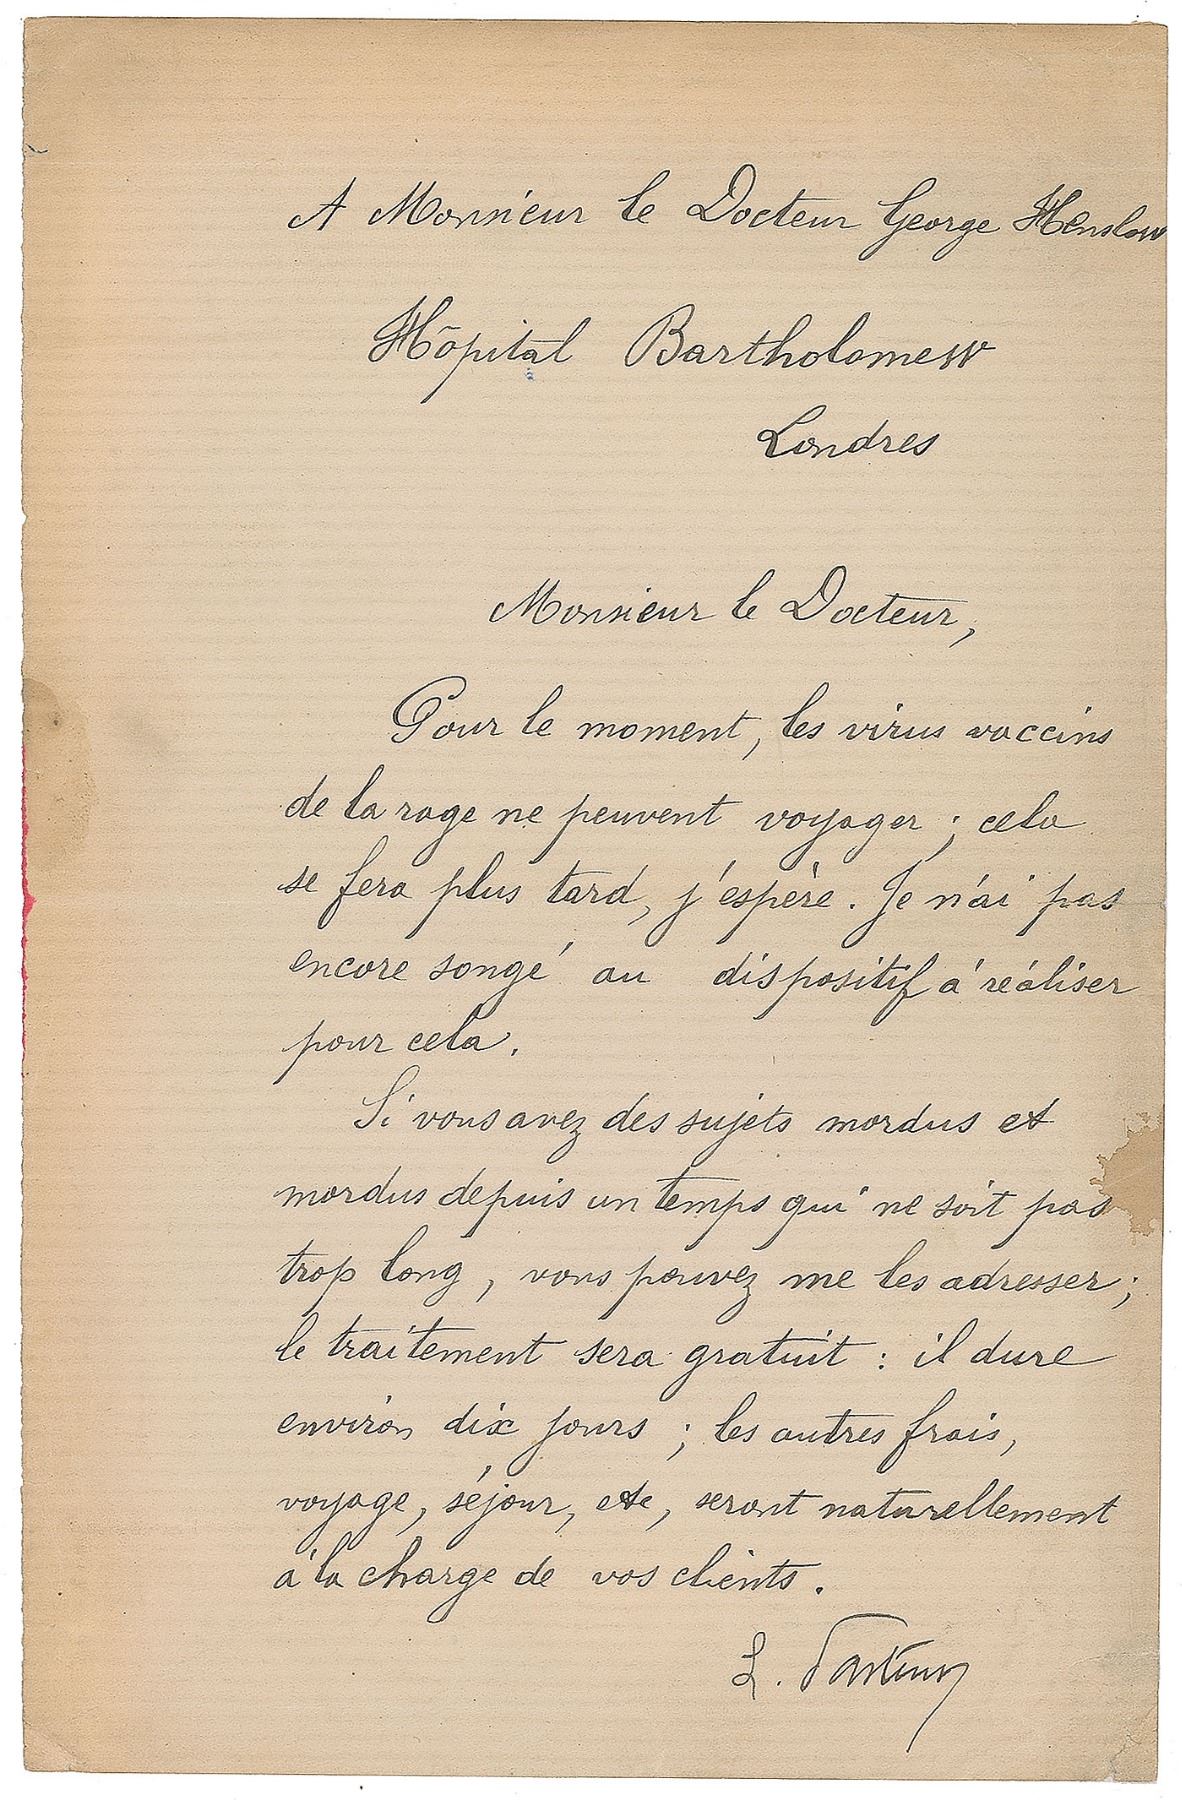 A Monsieur le Docteur George Henslow
Hôpital Bartholomew
Londres
Monsieur le Docteur,
Pour le moment, les virus vaccins
de la rage ne peuvent voyager ; cela
se fera plus tard, j'espère. Je n'ai pas
encore songé au dispositif à réaliser
pour cela.
Si vous avez des sujets mordus et
mordus depuis un temps qui ne soit pas
trop long, vous pouvez me les adresser ;
le traitement sera gratuit : il dure
environ dix jours ; les autres frais,
voyage, séjour, etc, seront naturellement
à la charge de vos clients.
L. Pasteur